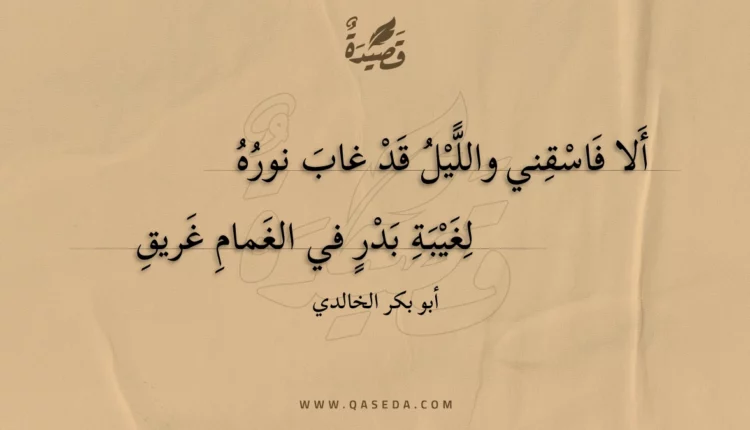 قَصِيْدَةٌ
أَلا فَاسْقِني واللَّيْلُ قَدْ غابَ نورُهُ
لِغَيْبَةِ بَدْرٍ في الغَمامِ غَريقِ
أبو بكر الخالدي
WWW.QASEDA.COM